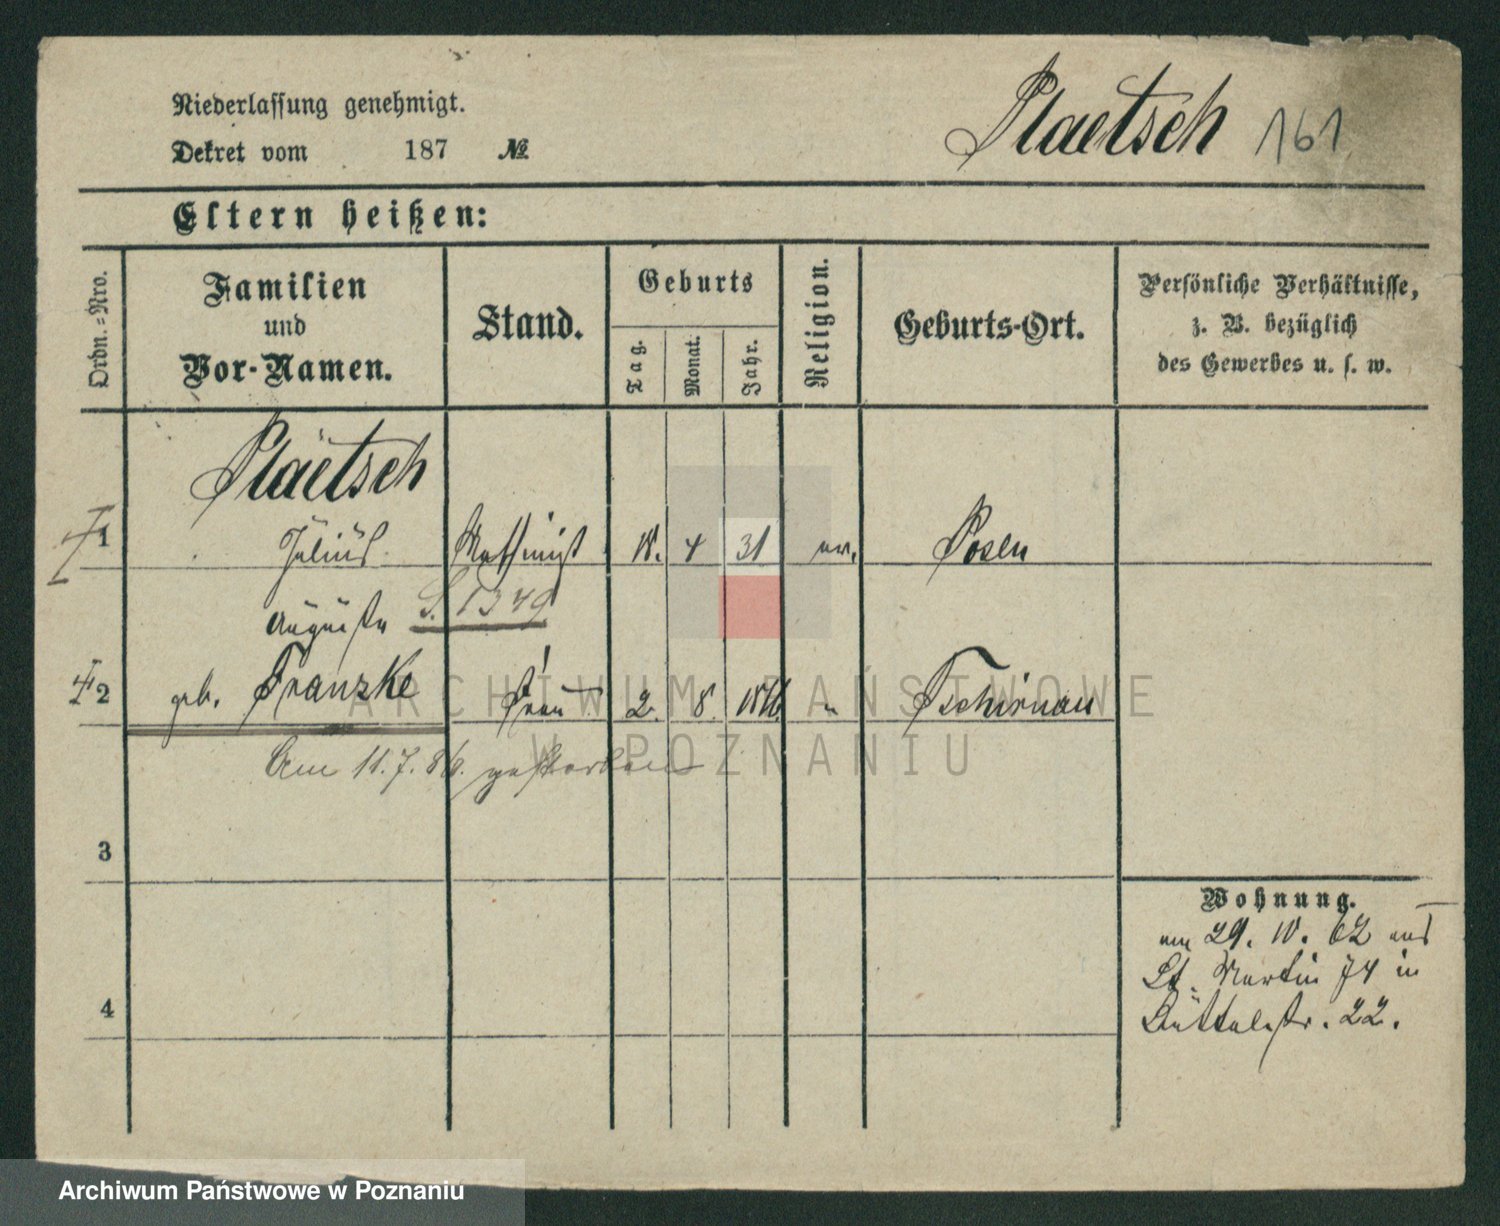 Niederlassung genehmigt.
Plaetsch 161
Dekret vom 187 №
Eltern heißen:
Ordn.=Nro.
Familien
und
Vor-Namen.
Stand.
Geburts
Tag.
Monat.
Jahr.
Religion.
Geburts-Ort.
Persönliche Verhältnisse,
z. B. bezüglich
des Gewerbes u. s. w.
Plaetsch
1 Julius 4 31 ev. Posen
Auguste
2 geb. Franzke Frau 2. 8. " Tschirnau
Am 11. 7. 86. gestorben
3
Wohnung.
am 29. 10. 62 aus
St. Martin 74 in
Büttelstr. 22.
4
ARCHIWUM PAŃSTWOWE
W POZNANIU
Archiwum Państwowe w Poznaniu